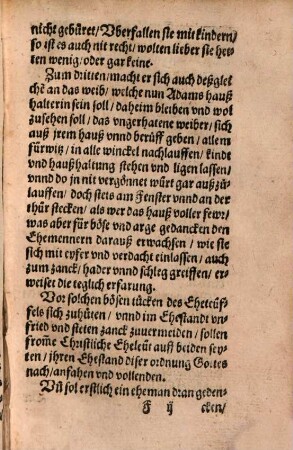 nicht gebüret/ Vberfallen sie mit kindern/
so ist es auch nit recht/ wolten lieber sie het-
ten wenig/ oder gar keine.
Zum dritten/ macht er sich auch deßglei
chē an das weib/ welche nun Adams hauß
halterin sein soll/ daheim bleiben vnd wol
zusehen soll/ das vngerhatene weiber/ sich
auß jrem hauß vnnd berüff geben/ allem
fürwitz/ in alle winckel nachlauffen/ kindt
vnd haußhaltung stehen vnd ligen lassen/
vnnd do jn nit vergönnet würt gar außzů-
lauffen/ doch stets am Fenster vnnd an der
thür stecken/ als wer das hauß voller fewr/
was aber für böse vnd arge gedancken den
Ehemennern darauß erwachsen/ wie sie
sich mit eyfer vnd verdacht einlassen/ auch
zum zanck/ hader vnnd schleg greiffen/ er-
weiset die teglich erfarung.
Vor solchen bösen tücken des Eheteüf-
fels sich zuhüten/ vnnd im Ehestandt vn-
fried vnd steten zanck zuuermeiden/ sollen
from̄e Christliche Eheleüt auff beiden sey-
ten/ jhren Ehestand diser ordnung Gottes
nach/ anfahen vnd vollenden.
Vn̄ sol erstlich ein eheman dran geden-
F ij cken/